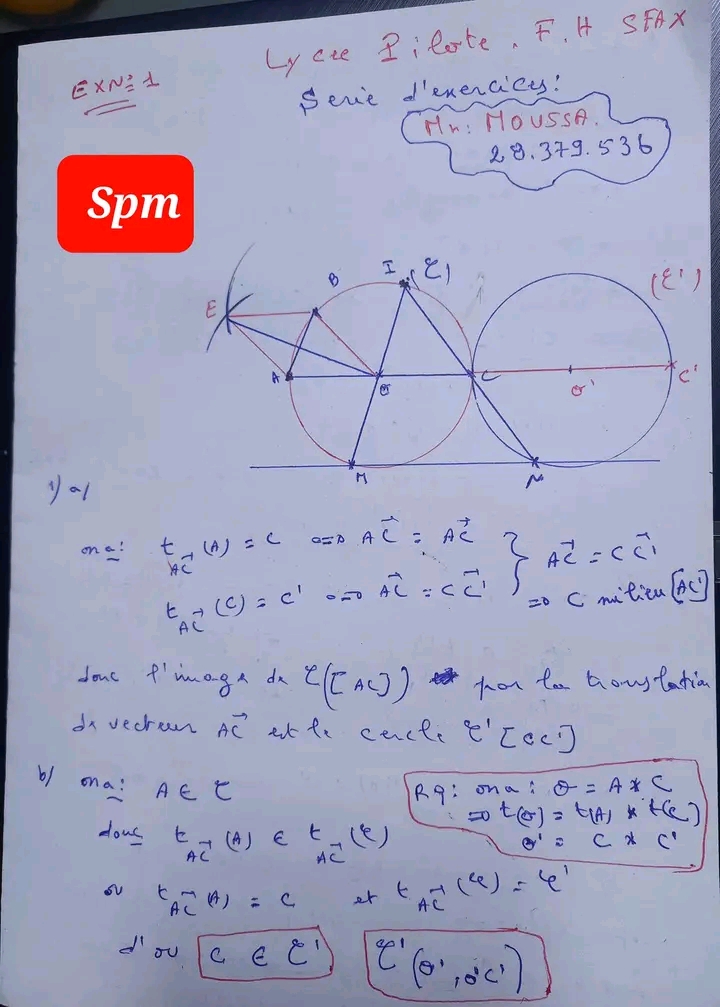 Lycee Pilote. F.H SFAX
EXN°1
Serie d'exercices:
Mr: MOUSSA.
28.379.536
Spm
E B I (ℭ) (ℭ')
A O C O' C'
M N
1) a/
on a: t_AC⃗ (A) = C ⟺ AC⃗ = AC⃗
t_AC⃗ (C) = C' ⟺ AC⃗ = CC'⃗
} AC⃗ = CC'⃗
⇒ C milieu [AC']
donc l'image de ℭ([AC]) par la translation
de vecteur AC⃗ est le cercle ℭ'[CC']
b) on a: A ∈ ℭ
Rq: on a: O = A * C
⇒ t(O) = t(A) * t(C)
O' = C * C'
donc t_AC⃗ (A) ∈ t_AC⃗ (ℭ)
or t_AC⃗ (A) = C et t_AC⃗ (ℭ) = ℭ'
d'où C ∈ ℭ' ℭ'(O', O'C')